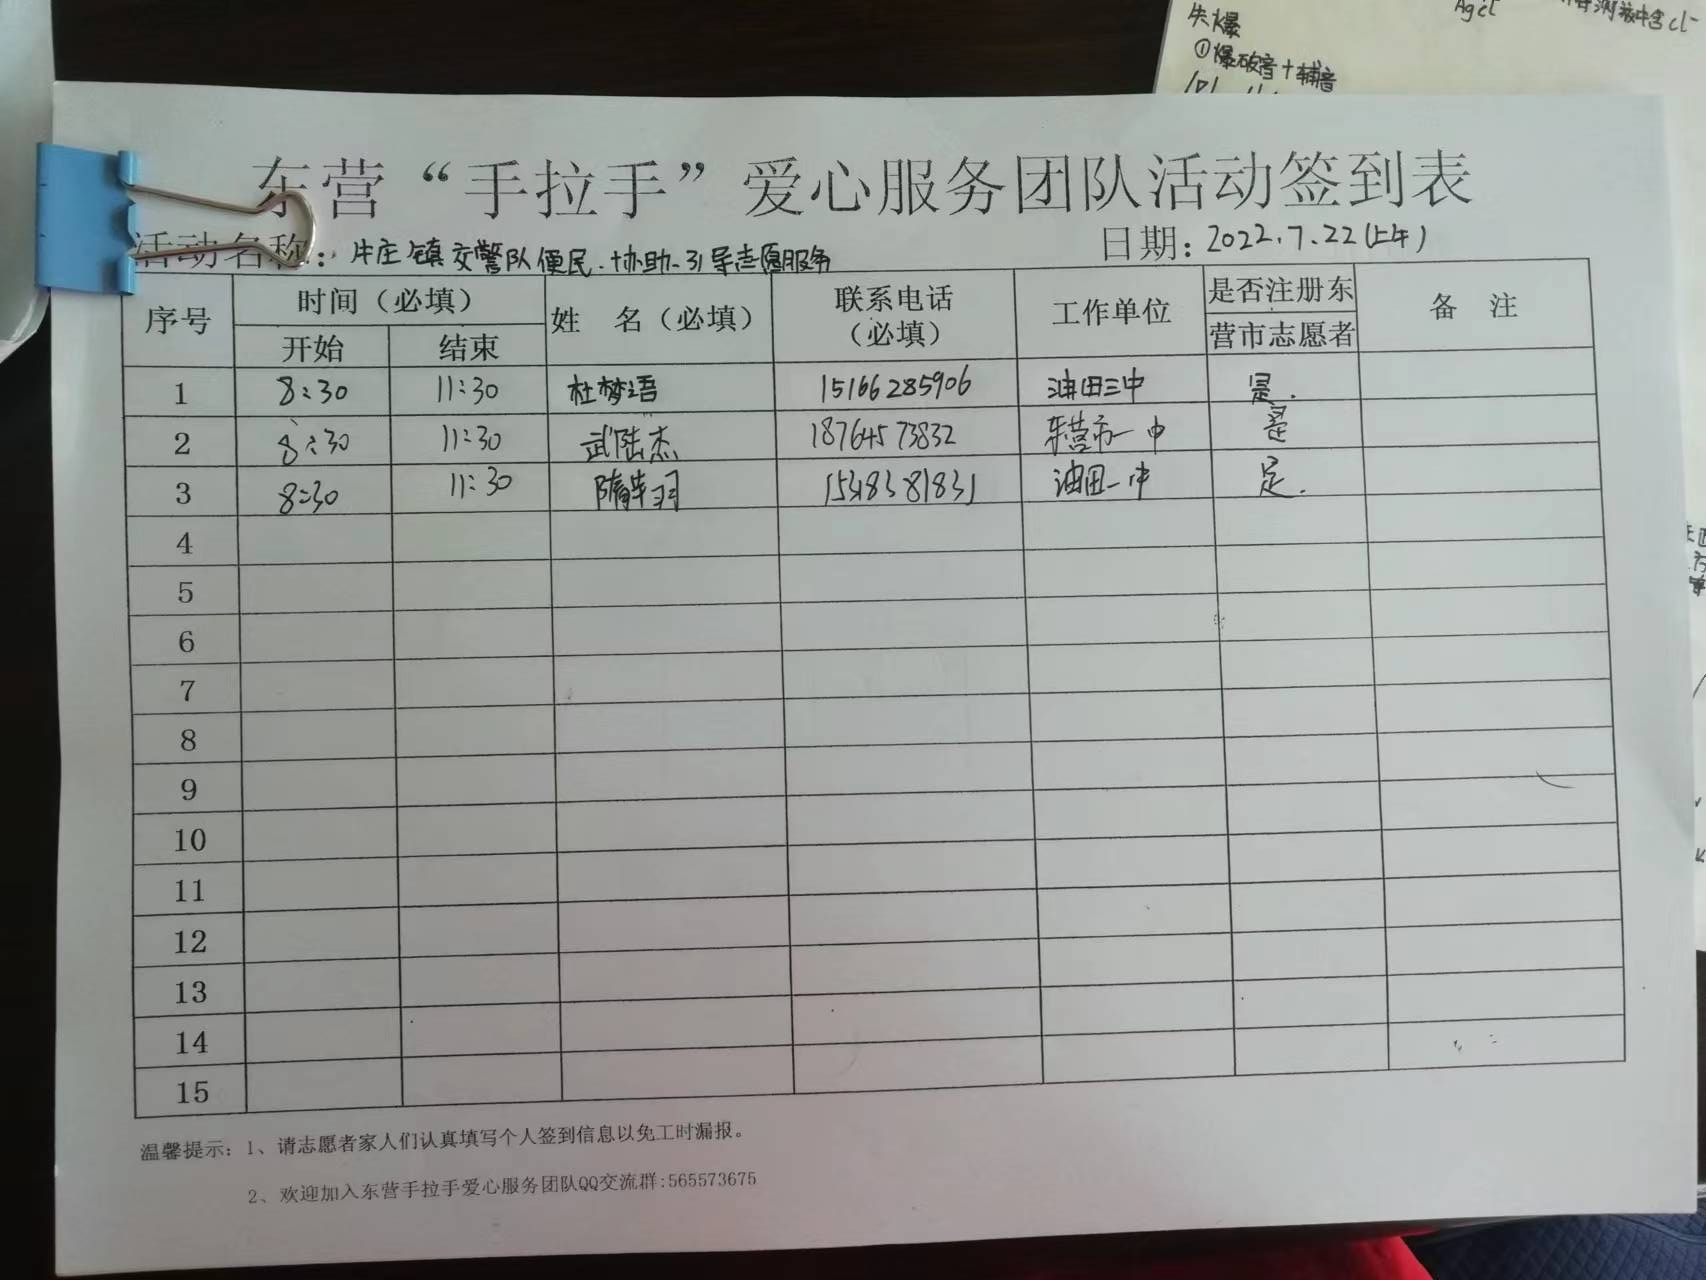 失爆
①爆破音+辅音
AgCl
测液中含Cl-
东营“手拉手”爱心服务团队活动签到表
活动名称：牛庄镇交警队便民、协助、引导志愿服务 日期：2022.7.22(上午)
序号 时间（必填） 姓 名（必填） 联系电话（必填） 工作单位 是否注册东营市志愿者 备 注
开始 结束
1 8:30 11:30 杜梦语 15166285906 油田三中 是.
2 8:30 11:30 武陆杰 18764573832 东营市一中 是
3 8:30 11:30 隋 羽 油田一中 是.
4
5
6
7
8
9
10
11
12
13
14
15
温馨提示：1、请志愿者家人们认真填写个人签到信息以免工时漏报。
2、欢迎加入东营手拉手爱心服务团队QQ交流群:565573675